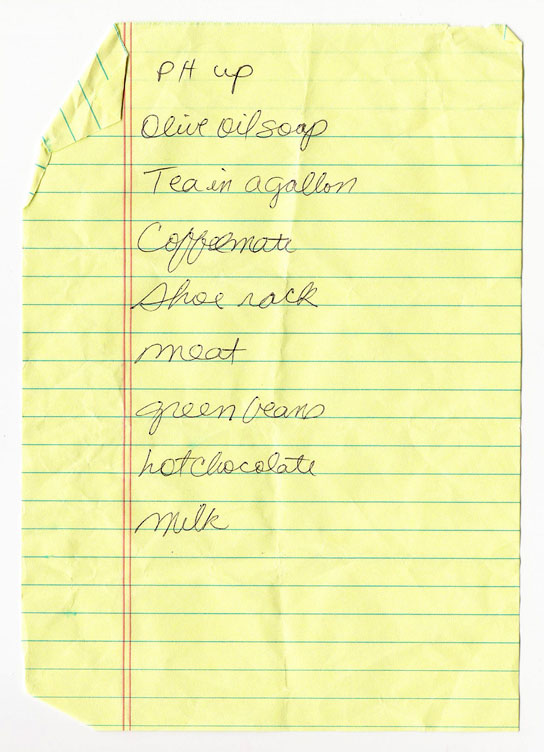 PH up
Olive oil soap
Tea in a gallon
Coffeemate
Shoe rack
meat
green beans
hot chocolate
milk